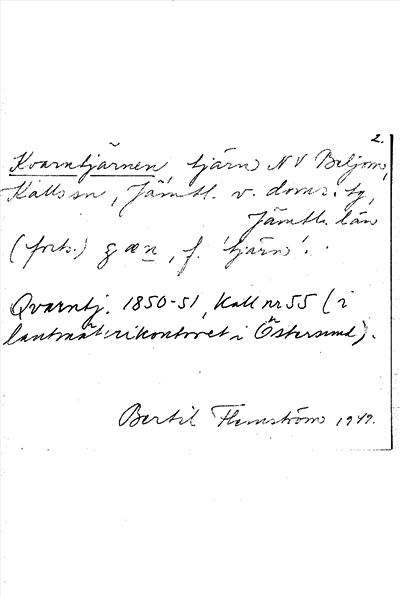 2.
Kvarntjärnen, tjärn NV Beljom,
Kalls sn, Jämtl. v. doms. tg,
Jämtl. län
(forts.) gæn, f. 'tjärn'.
Qvarntj. 1850-51, Kall nr 55 (i
lantmäterikontoret i Östersund).
Bertil Flemström 1949.